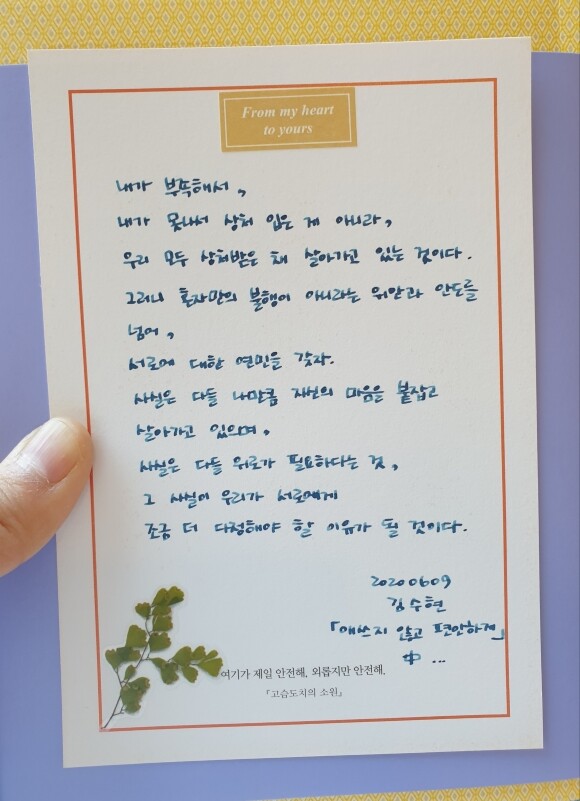 From my heart
to yours
내가 부족해서,
내가 못나서 상처 입은 게 아니라,
우리 모두 상처받은 채 살아가고 있는 것이다.
그러니 혼자만의 불행이 아니라는 위안과 안도를
넘어,
서로에 대한 연민을 갖자.
사실은 다들 나만큼 자신의 마음을 붙잡고
살아가고 있으며,
사실은 다들 위로가 필요하다는 것,
그 사실이 우리가 서로에게
조금 더 다정해야 할 이유가 될 것이다.
20200609
김수현
「애쓰지 않고 편안하게」
中 ...
여기가 제일 안전해. 외롭지만 안전해.
『고슴도치의 소원』